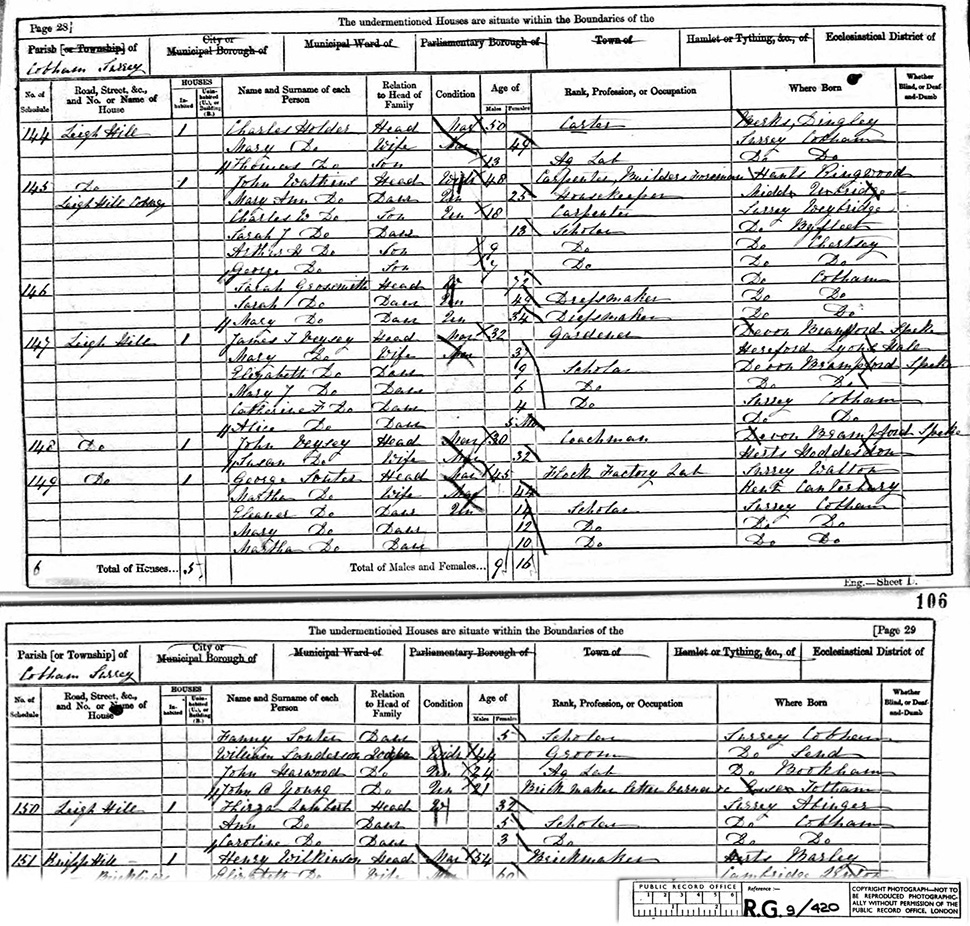 Page 28]
The undermentioned Houses are situate within the Boundaries of the
Parish [or Township] of
City or Municipal Borough of
Municipal Ward of
Parliamentary Borough of
Town of
Hamlet or Tything, &c., of
Ecclesiastical District of
Cobham Surrey
No. of Schedule
Road, Street, &c., and No. or Name of House
HOUSES
In-habited
Unin-habited (U.), or Building (B.)
Name and Surname of each Person
Relation to Head of Family
Condition
Age of
Males
Females
Rank, Profession, or Occupation
Where Born
Whether Blind, or Deaf-and-Dumb
144 Leigh Hill 1 Charles Holder Head Mar 50 Carter Berks, Bingley
Mary Do Wife Mar 49 Surrey Cobham
Thomas Do Son 13 Ag Lab Do Do
145 Do 1 John Watkins Head Widr 48 Carpenter Builders Foreman Hants Ringwood
Leigh Hill Cottage Mary Ann Do Daur Un 25 Housekeeper Middx Uxbridge
Charles Do Son Un 18 Carpenter Surrey Weybridge
Sarah J Do Daur 13 Scholar Do Byfleet
Arthur Do Son 9 Do Do Chertsey
George Do Son 7 Do Do Do
146 Sarah Grosmith Head W 72 Do Cobham
Sarah Do Daur Un 49 Dressmaker Do Do
Mary Do Daur Un 34 Dressmaker Do Do
147 Leigh Hill 1 James T Veysey Head Mar 32 Gardener Devon Brampford Speke
Mary Do Wife Mar 37 Hereford Lyons Hale
Elizabeth Do Daur 9 Scholar Devon Brampford Speke
Mary J Do Daur 6 Do Do Do
Catherine F Do Daur 4 Do Surrey Cobham
Alice Do Daur 5 Mo Do Do
148 Do 1 John Veysey Head Mar 30 Coachman Devon Brampford Speke
Susan Do Wife Mar 32 Herts Hoddesdon
149 Do 1 George Souter Head Mar 45 Flock Factory Lab Surrey Walton
Martha Do Wife Mar 44 Kent Canterbury
Eleanor Do Daur Un 14 Scholar Surrey Cobham
Mary Do Daur 12 Do Do Do
Martha Do Daur 10 Do Do Do
6 Total of Houses... 5 Total of Males and Females... 9 16
Eng.—Sheet D.
106
The undermentioned Houses are situate within the Boundaries of the
[Page 29
Parish [or Township] of
City or Municipal Borough of
Municipal Ward of
Parliamentary Borough of
Town of
Hamlet or Tything, &c., of
Ecclesiastical District of
Cobham Surrey
No. of Schedule
Road, Street, &c., and No. or Name of House
HOUSES
In-habited
Unin-habited (U.), or Building (B.)
Name and Surname of each Person
Relation to Head of Family
Condition
Age of
Males
Females
Rank, Profession, or Occupation
Where Born
Whether Blind, or Deaf-and-Dumb
Fanny Souter Daur 5 Scholar Surrey Cobham
William Sanderson Lodger Widr 44 Groom Do Send
John Harwood Do Un 24 Ag Lab Do Bookham
John C Young Do Un 21 Brick maker Essex Totham
150 Leigh Hill 1 Thirza Lambert Head W 37 Surrey Abinger
Ann Do Daur 5 Scholar Do Cobham
Caroline Do Daur 3 Do Do Do
151 Knipp Hill 1 Henry Wilkinson Head Mar 54 Brickmaker Herts Barley
Elizabeth Do Wife Mar 60 Cambridge
PUBLIC RECORD OFFICE
1 2 3 4 5 6
Reference :-
R.G. 9/420
COPYRIGHT PHOTOGRAPH—NOT TO BE REPRODUCED PHOTOGRAPHICALLY WITHOUT PERMISSION OF THE PUBLIC RECORD OFFICE, LONDON